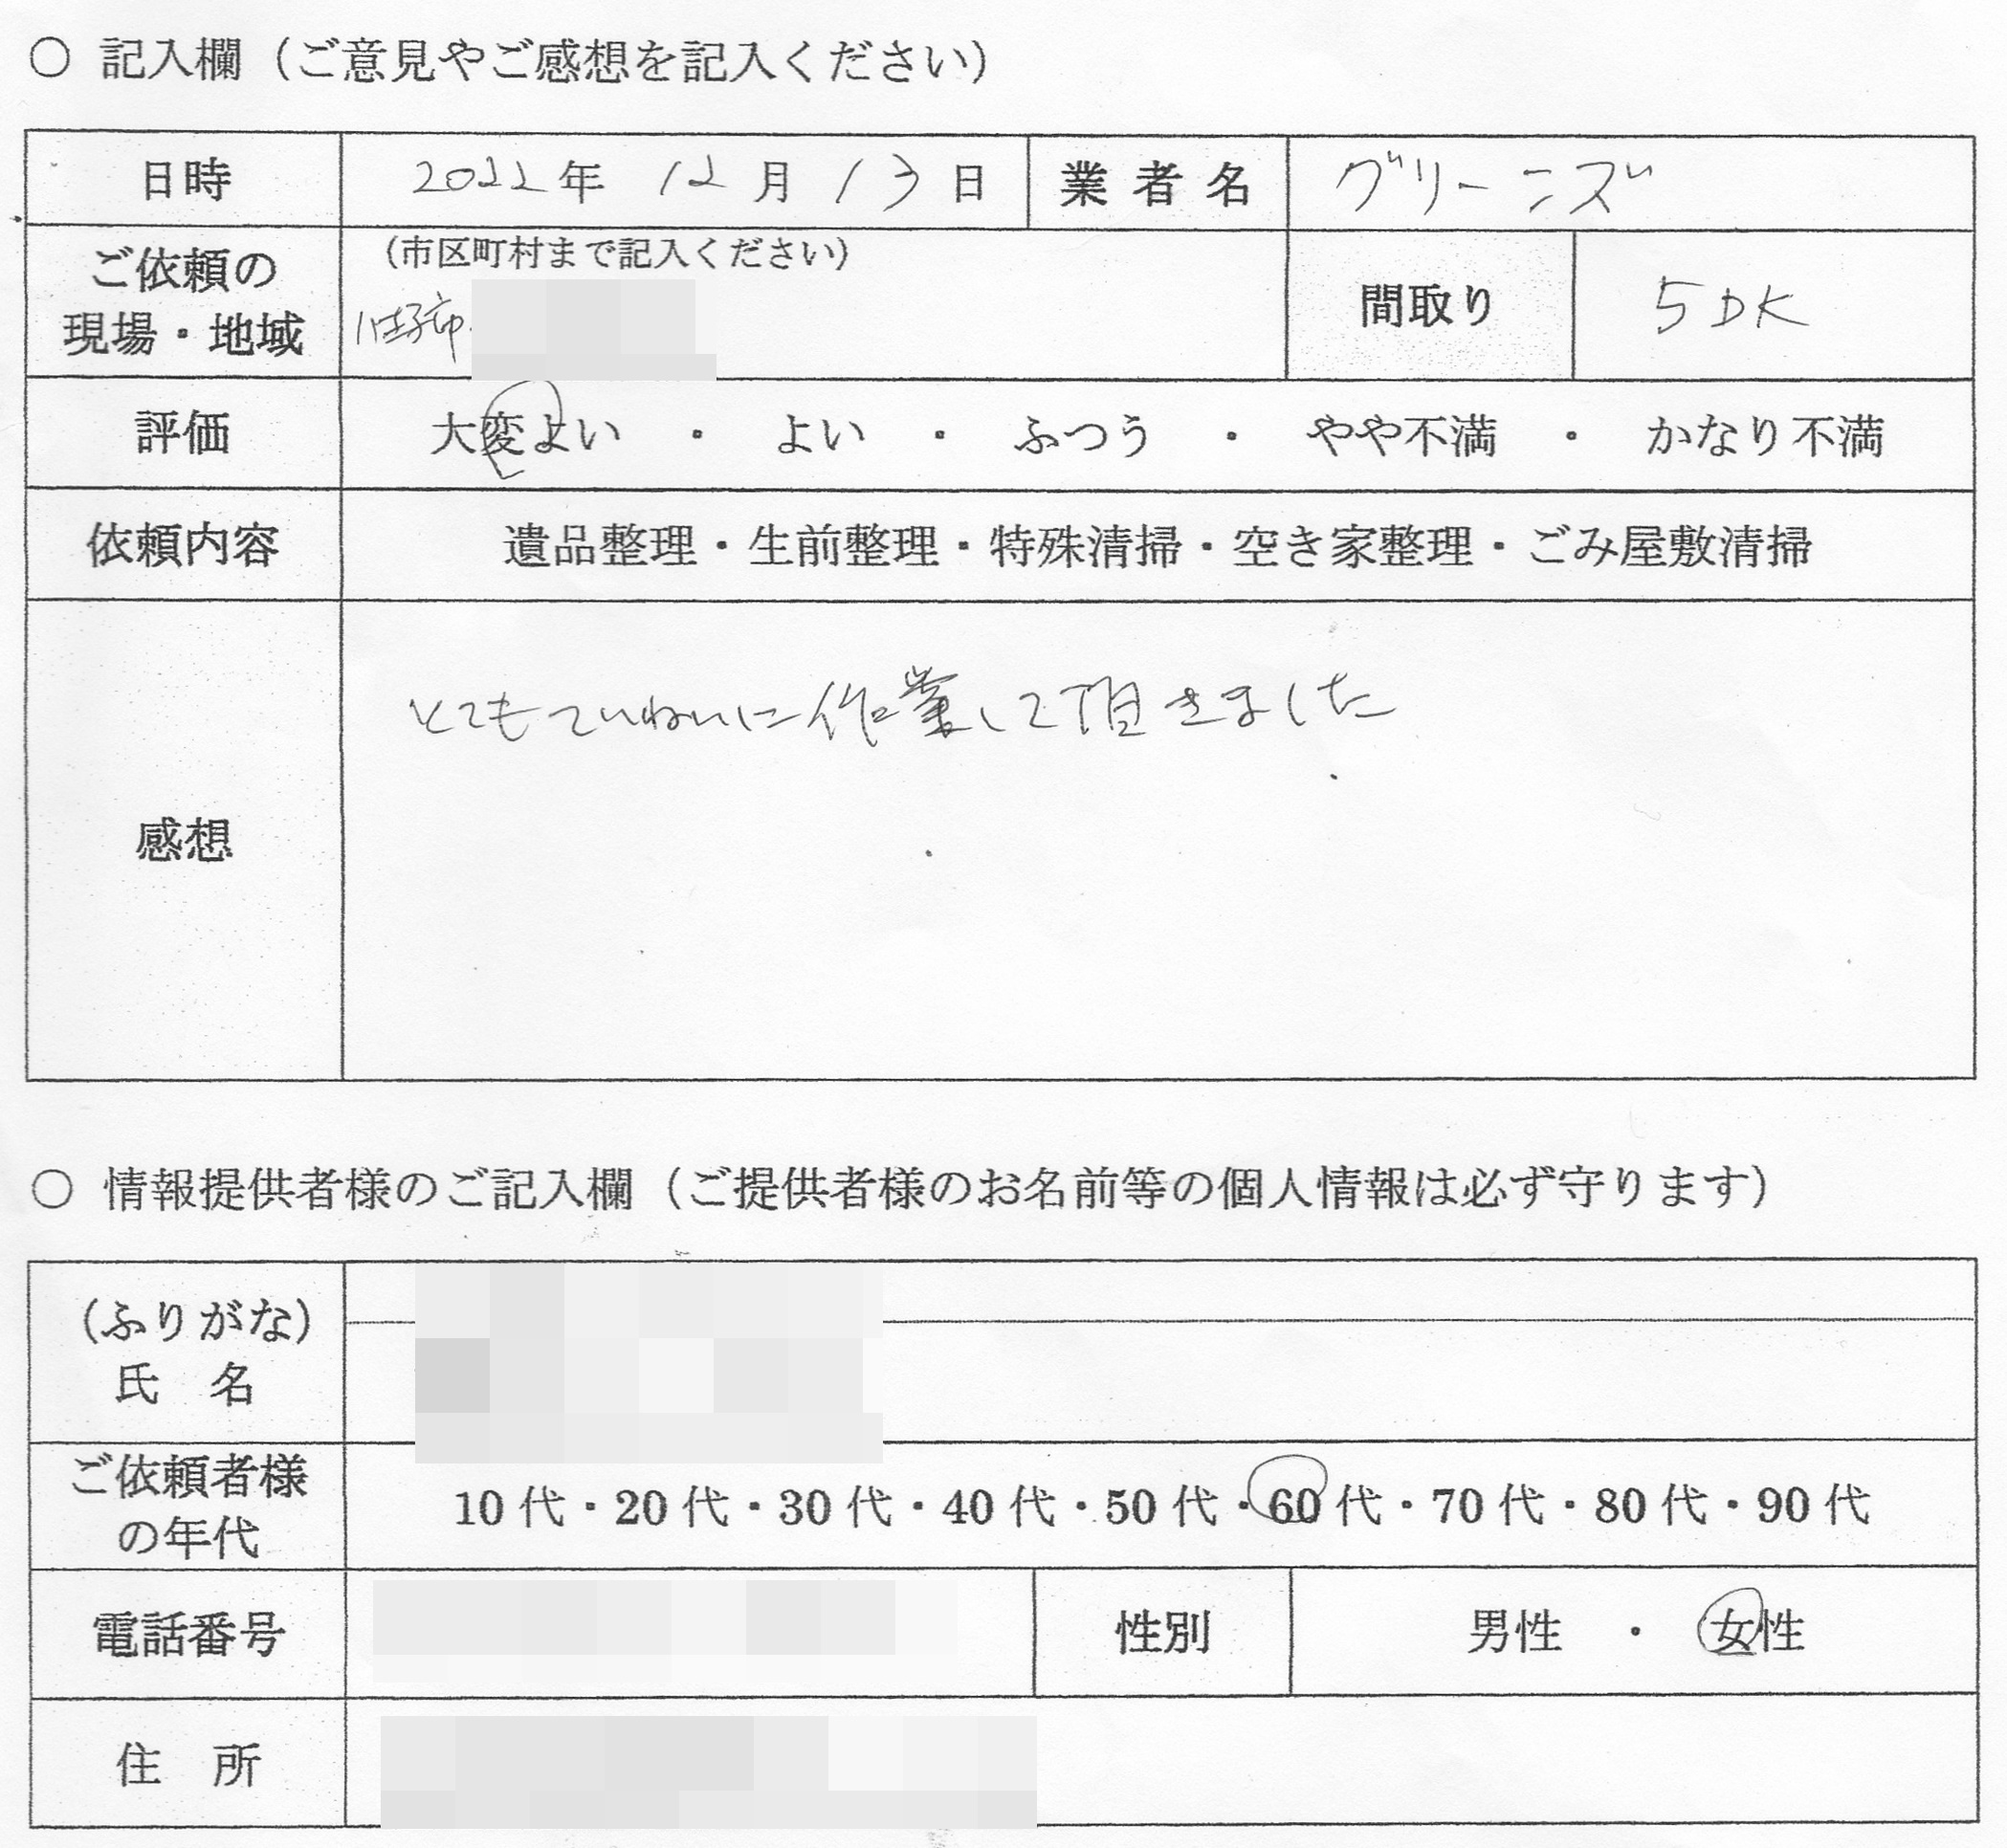 ○ 記入欄（ご意見やご感想を記入ください）
日時 2022年 12月 13日 業者名 グリーンズ
ご依頼の
現場・地域
（市区町村まで記入ください）
八王子市
間取り 5DK
評価 大変よい ・ よい ・ ふつう ・ やや不満 ・ かなり不満
依頼内容 遺品整理・生前整理・特殊清掃・空き家整理・ごみ屋敷清掃
感想 とてもていねいに作業して頂きました
○ 情報提供者様のご記入欄（ご提供者様のお名前等の個人情報は必ず守ります）
（ふりがな）
氏 名
ご依頼者様
の年代
10代・20代・30代・40代・50代・60代・70代・80代・90代
電話番号 性別 男性 ・ 女性
住 所